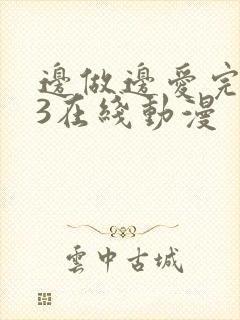 邊做邊愛完
3在綫動漫
雲中古城